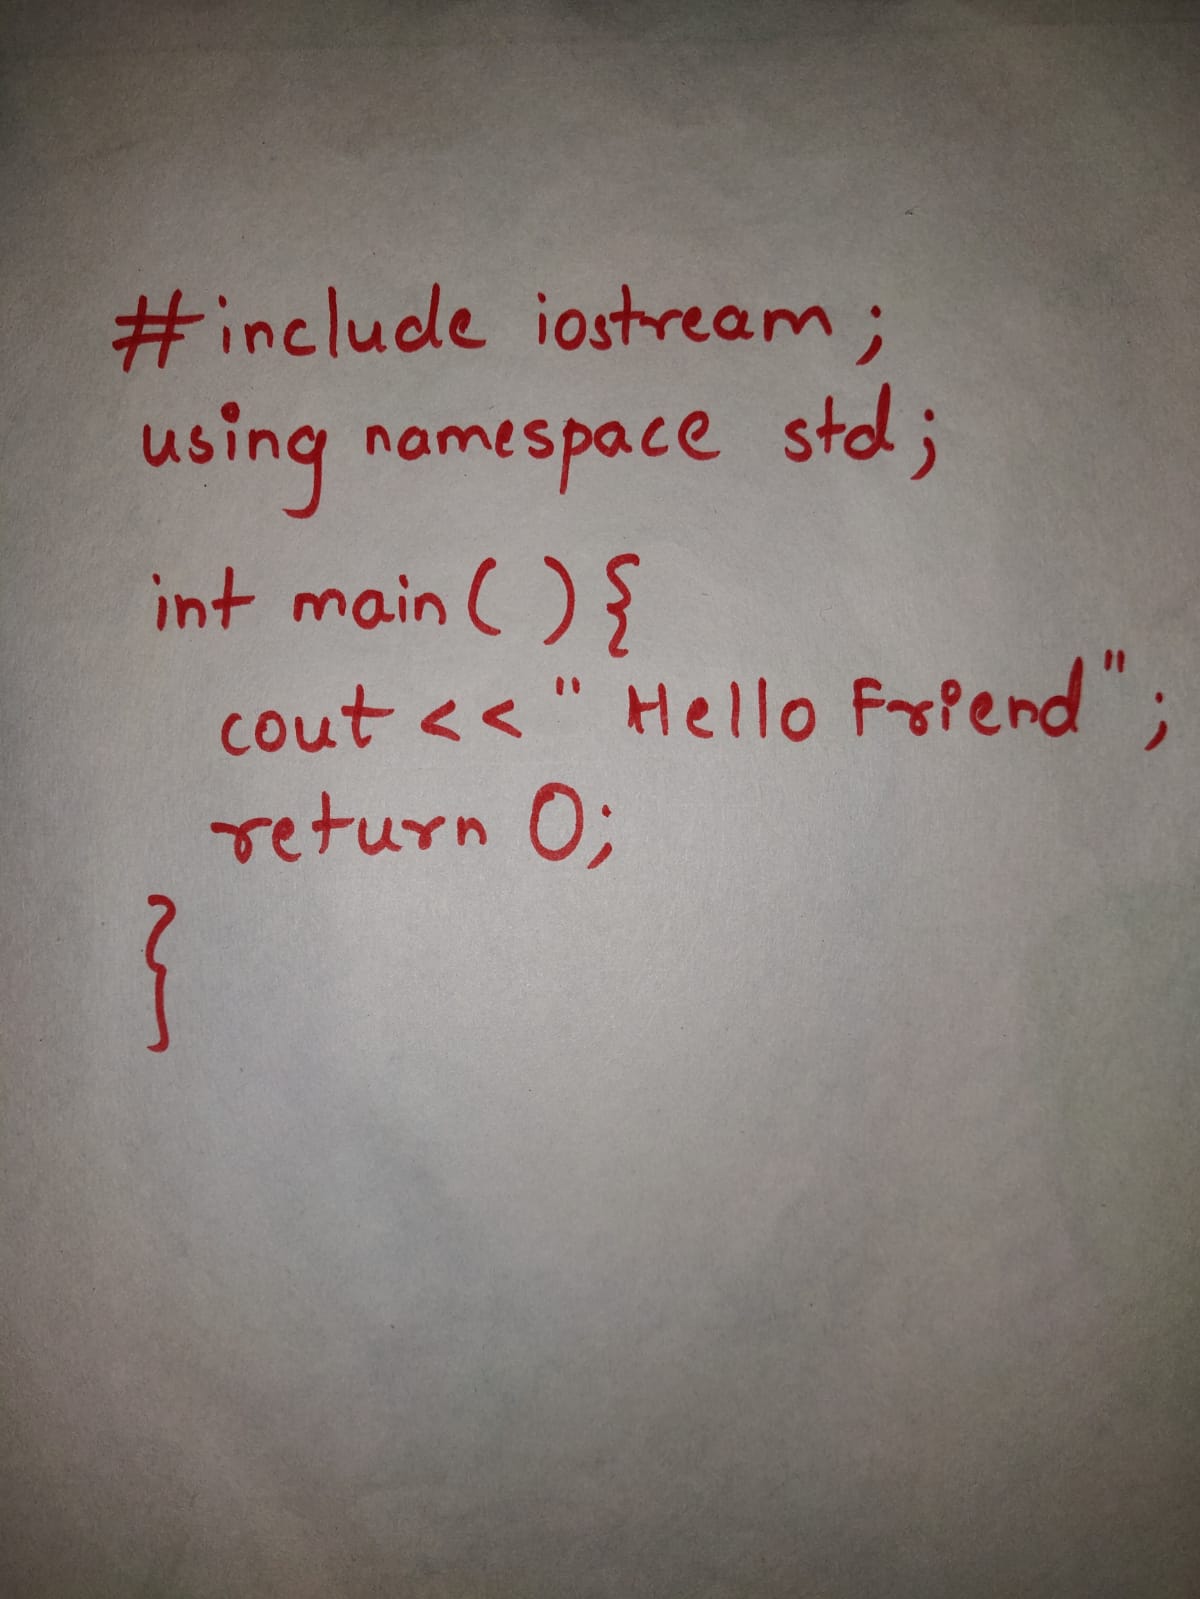 #include iostream;
using namespace std;
int main( ){
cout << " Hello Friend";
return 0;
}